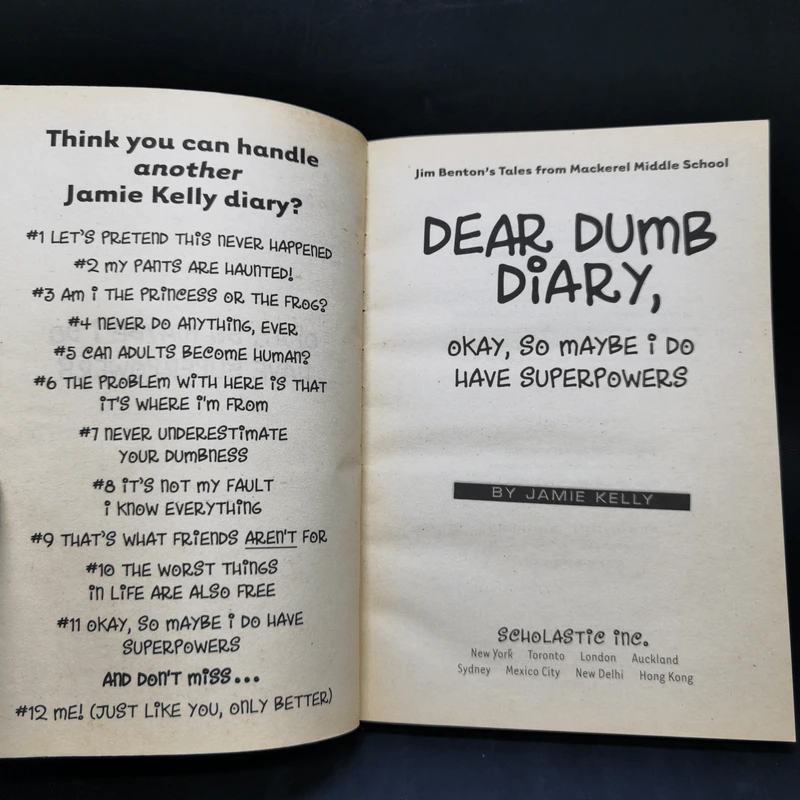 Think you can handle
another
Jamie Kelly diary?
#1 LET'S PRETEND THiS NEVER HAPPENED
#2 mY PANTS ARE HAUNTED!
#3 Am i THE PRiNCESS OR THE FROG?
#4 NEVER DO ANYTHiNG, EVER
#5 CAN ADULTS BECOmE HUmAN?
#6 THE PROBLEm WiTH HERE iS THAT
iT'S WHERE i'm FROm
#7 NEVER UNDERESTimATE
YOUR DUmBNESS
#8 iT'S NOT mY FAULT
i KNOW EVERYTHiNG
#9 THAT'S WHAT FRiENDS AREN'T FOR
#10 THE WORST THiNGS
iN LiFE ARE ALSO FREE
#11 OKAY, SO mAYBE i DO HAVE
SUPERPOWERS
AND DON'T miSS...
#12 mE! (JUST LiKE YOU, ONLY BETTER)
Jim Benton's Tales from Mackerel Middle School
DEAR DUmB
DiARY,
OKAY, SO mAYBE i DO
HAVE SUPERPOWERS
BY JAMIE KELLY
SCHOLASTiC iNC.
New York Toronto London Auckland
Sydney Mexico City New Delhi Hong Kong